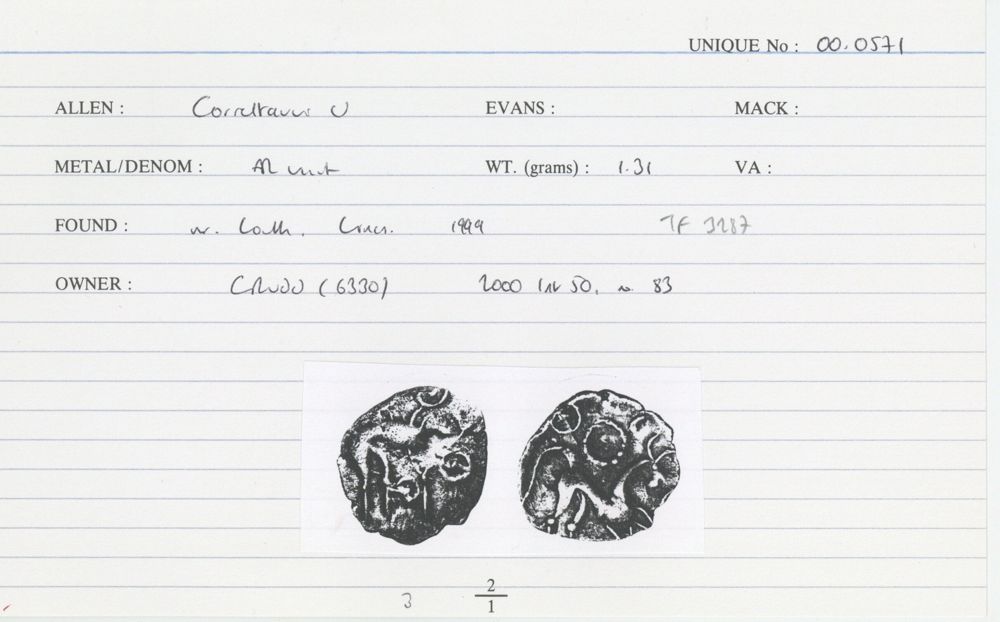 UNIQUE No : 00.0571
ALLEN : Corieltauvi U EVANS : MACK :
METAL/DENOM : AR unit WT. (grams) : 1.31 VA :
FOUND : nr. Louth, Lincs. 1999 TF 3287
OWNER : CRUDD (6330) 2000 List 50, no 83
3 2
1